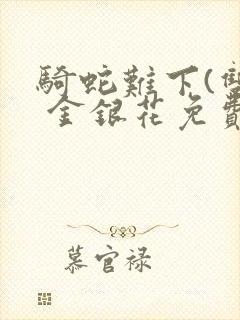 騎蛇難下(雙
金銀花免費
慕官禄